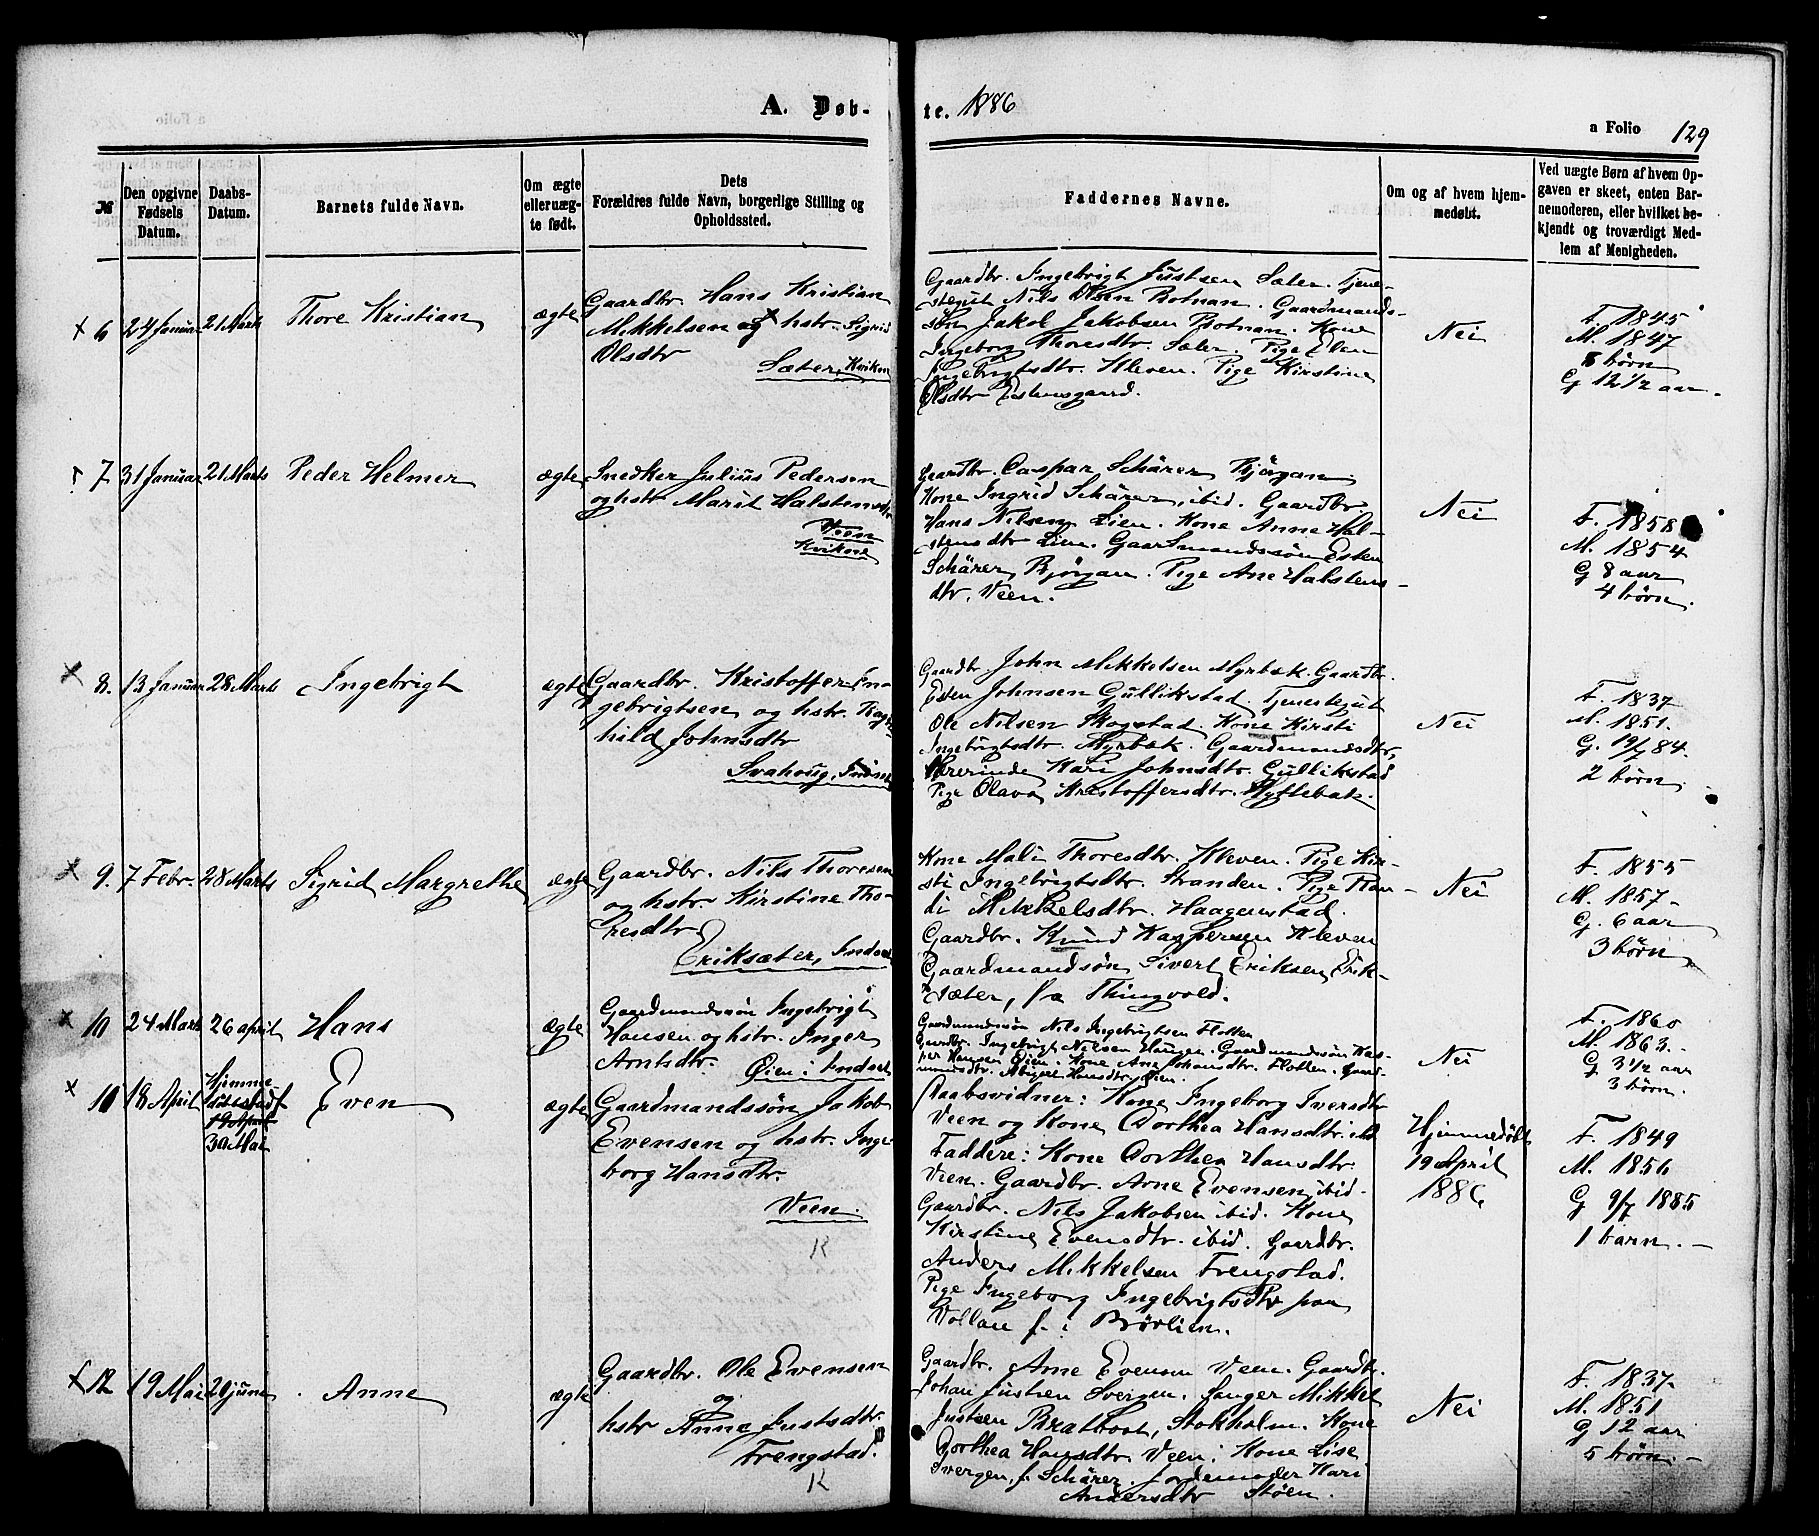 A. Døb-
te. 1886
a Folio 129
№
Den opgivne Fødsels Datum.
Daabs-Datum.
Barnets fulde Navn.
Om ægte eller uæg-te født.
Dets Forældres fulde Navn, borgerlige Stilling og Opholdssted.
Faddernes Navne.
Om og af hvem hjem-medøbt.
Ved uægte Børn af hvem Op-gaven er skeet, enten Bar-nemoderen, eller hvilket be-kjendt og troværdigt Med-lem af Menigheden.
6 24 Januar 21 Marts Thore Kristian ægte
Gaardbr. Hans Kristian
Mikkelsen og hstr. Sigrid
Olsdtr
Sæter, Kvikne
Gaardbr. Ingebrigt Justsen Sæter. Tjene-
stegut Nils Olsen Botnan. Gaardmands-
søn Jakob Jakobsen Botnan. Kone
Ingeborg Thoresdtr. Sæter. Pige Elen
Ingebrigtsdtr. Kleven. Pige Kirstine
Olsdtr Estensgaard.
Nei
F. 1845
M. 1847
8 børn
G 12 1/2 aar
7 31 Januar 21 Marts Peder Helmer ægte
Snedker Julius Pedersen
og hstr. Marit Halstensdtr
Veen
Kvikne
Gaardbr. Caspar Schärer Bjørgan
Kone Ingrid Schärer, ibid. Gaardbr
Hans Nilsen Lien. Kone Anne Hal-
stensdtr Lien. Gaardmandssøn Esten
Schärer Bjørgan. Pige Ane Halstens-
dtr. Veen.
Nei
F. 1858
M. 1854
G 8 aar
4 børn.
8. 13 Januar 28 Marts Ingebrigt ægte
Gaardbr. Kristoffer In-
gebrigtsen og hstr. Ragn-
hild Johnsdtr
Svahoug, Indset
Gaardbr. John Mikkelsen Myrbæk. Gaardbr.
Esten Johnsen Gullikstad. Tjenestegut
Ole Nilsen Skogstad. Kone Kirsti
Ingebrigtsdtr. Myrbæk. Gaardmandsdtr,
Lærerinde Kari Johnsdtr. Gullikstad
Pige Olava Kristoffersdtr.
Nei
F. 1837
M. 1851.
G. 19/7 84.
2 børn
9. 7 Febr. 28 Marts Sigrid Margrethe ægte
Gaardbr. Nils Thoresen
og hstr. Kirstine Tho-
resdtr
Eriksæter, Indset
Kone Mali Thoresdtr. Kleven. Pige Kir-
sti Ingebrigtsdtr. Stranden. Pige Ran-
di Mikkelsdtr. Haagenstad.
Gaardbr. Knud Kaspersen Kleven
Gaardmandssøn Sivert Eriksen Erik-
sæter, fra Thingvold.
Nei
F. 1855
M. 1857.
G. 6 aar
3 børn
10 24 Marts 26 april Hans ægte
Gaardmandssøn Ingebrigt
Hansen og hstr. Inger
Arntsdtr. Øien i Indset
Gaardmandssøn Nils Ingebrigtsen Flotten
Gaardbr. Ingebrigt Nilsen Haugen. Gaardmandssøn Kas-
per Hansen Øien. Kone Ane Johansdtr. Flotten. Gaard-
mandsdtr. Abigael Hansdtr. Øien.
Nei
F. 1860
M. 1863.
G 3 1/2 aar
3 børn.
11 18 April Hjemme
døbt
19 April
30 Mai
Even ægte
Gaardmandssøn Jakob
Evensen og hstr. Inge-
borg Hansdtr.
Veen.
K
Daabsvidner: Kone Ingeborg Iversdtr
Veen og Kone Dorthea Hansdtr. ibid
Faddere: Kone Dorthea Hansdtr.
Veen. Gaardbr. Arne Evensen, ibid.
Gaardbr. Nils Jakobsen ibid. Kone
Kirstine Evensdtr. ibid. Gaardbr.
Anders Mikkelsen Frengstad.
Pige Ingeborg Ingebrigtsdtr paa
Vollan f. i Brølien.
Hjemmedøbt
19 April
1886
F. 1849
M. 1856
G 9/7 1885
1 barn.
12 19 Mai 20 juni Anne ægte
Gaardbr. Ole Evensen
og
hstr Anne Justsdtr.
Frengstad.
K
Gaardbr. Arne Evensen Veen. Gaardbr.
Johan Justsen Svergen. Sanger Mikkel
Justsen Bratbost, Stokholm. Kone
Dorthea Hansdtr. Veen. Kone Lise
Svergen, f. Schärer. Jordemoder Kari
Andersdtr Støen.
Nei
F. 1837
M. 1851
G 12 aar
5 børn.